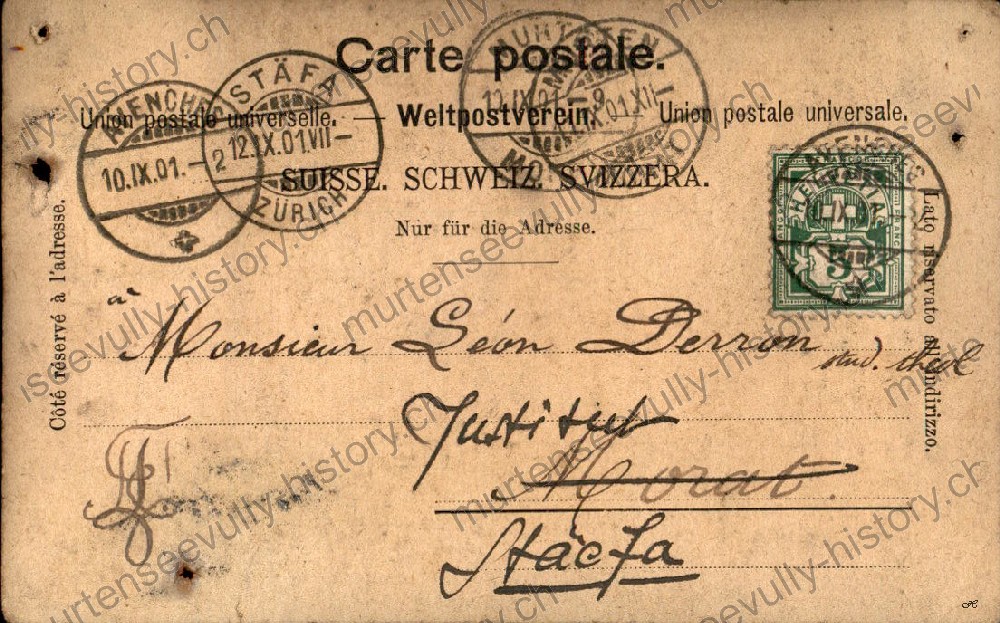 Carte postale.
Union postale universelle. Weltpostverein. Union postale universale.
SUISSE. SCHWEIZ. SVIZZERA.
Nur für die Adresse.
Côté réservé à l'adresse.
Lato riservato all'indirizzo.
AVENCHES
10.IX.01.-2
STÄFA
12.IX.01.VII-
ZÜRICH
MURTEN
HELVETIA
5
à
Monsieur Léon Derron
stud. theol
Institut
Morat.
Stäefa
murtenseevully-history.ch